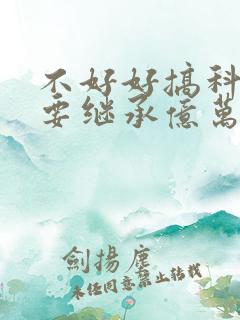 不好好搞科
要继承億萬
劍揚塵
未经同意禁止转载